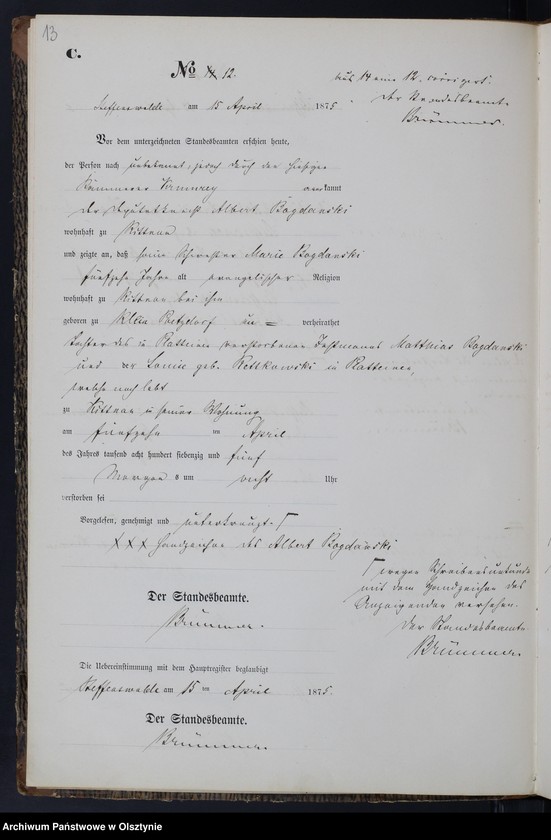 13
C.
No 14 12.
aus 14 eine 12. corrigirt.
Der Standesbeamte
Brümmer.
Steffenswalde am 15 April 1875
Vor dem unterzeichneten Standesbeamten erschien heute,
der Person nach unbekannt, jedoch durch den hiesigen
Kämmerer anerkannt
der Albert Bogdanski
wohnhaft zu Kittnau
und zeigte an, daß seine Schwester Marie Bogdanski
fünfzehn Jahre alt evangelischer Religion
wohnhaft zu Kittnau bei ihm
geboren zu Klein un = verheirathet
Tochter des in verstorbenen Instmanns Matthias Bogdanski
und der Louise geb. Rettkowski in
welche noch lebt
zu Kittnau in seiner Wohnung
am fünfzehn ten April
des Jahres tausend acht hundert siebenzig und fünf
Morgens um acht Uhr
verstorben sei
Vorgelesen, genehmigt und unterkreuzt. Γ
X X X Handzeichen des Albert Bogdanski
Γ wegen Schreibensunkunde
mit dem Handzeichen des
Anzeigenden versehen.
Der Standesbeamte
Brümmer
Der Standesbeamte.
Brümmer.
Die Uebereinstimmung mit dem Hauptregister beglaubigt
Steffenswalde am 15 ten April 1875.
Der Standesbeamte.
Brümmer.
Archiwum Państwowe w Olsztynie